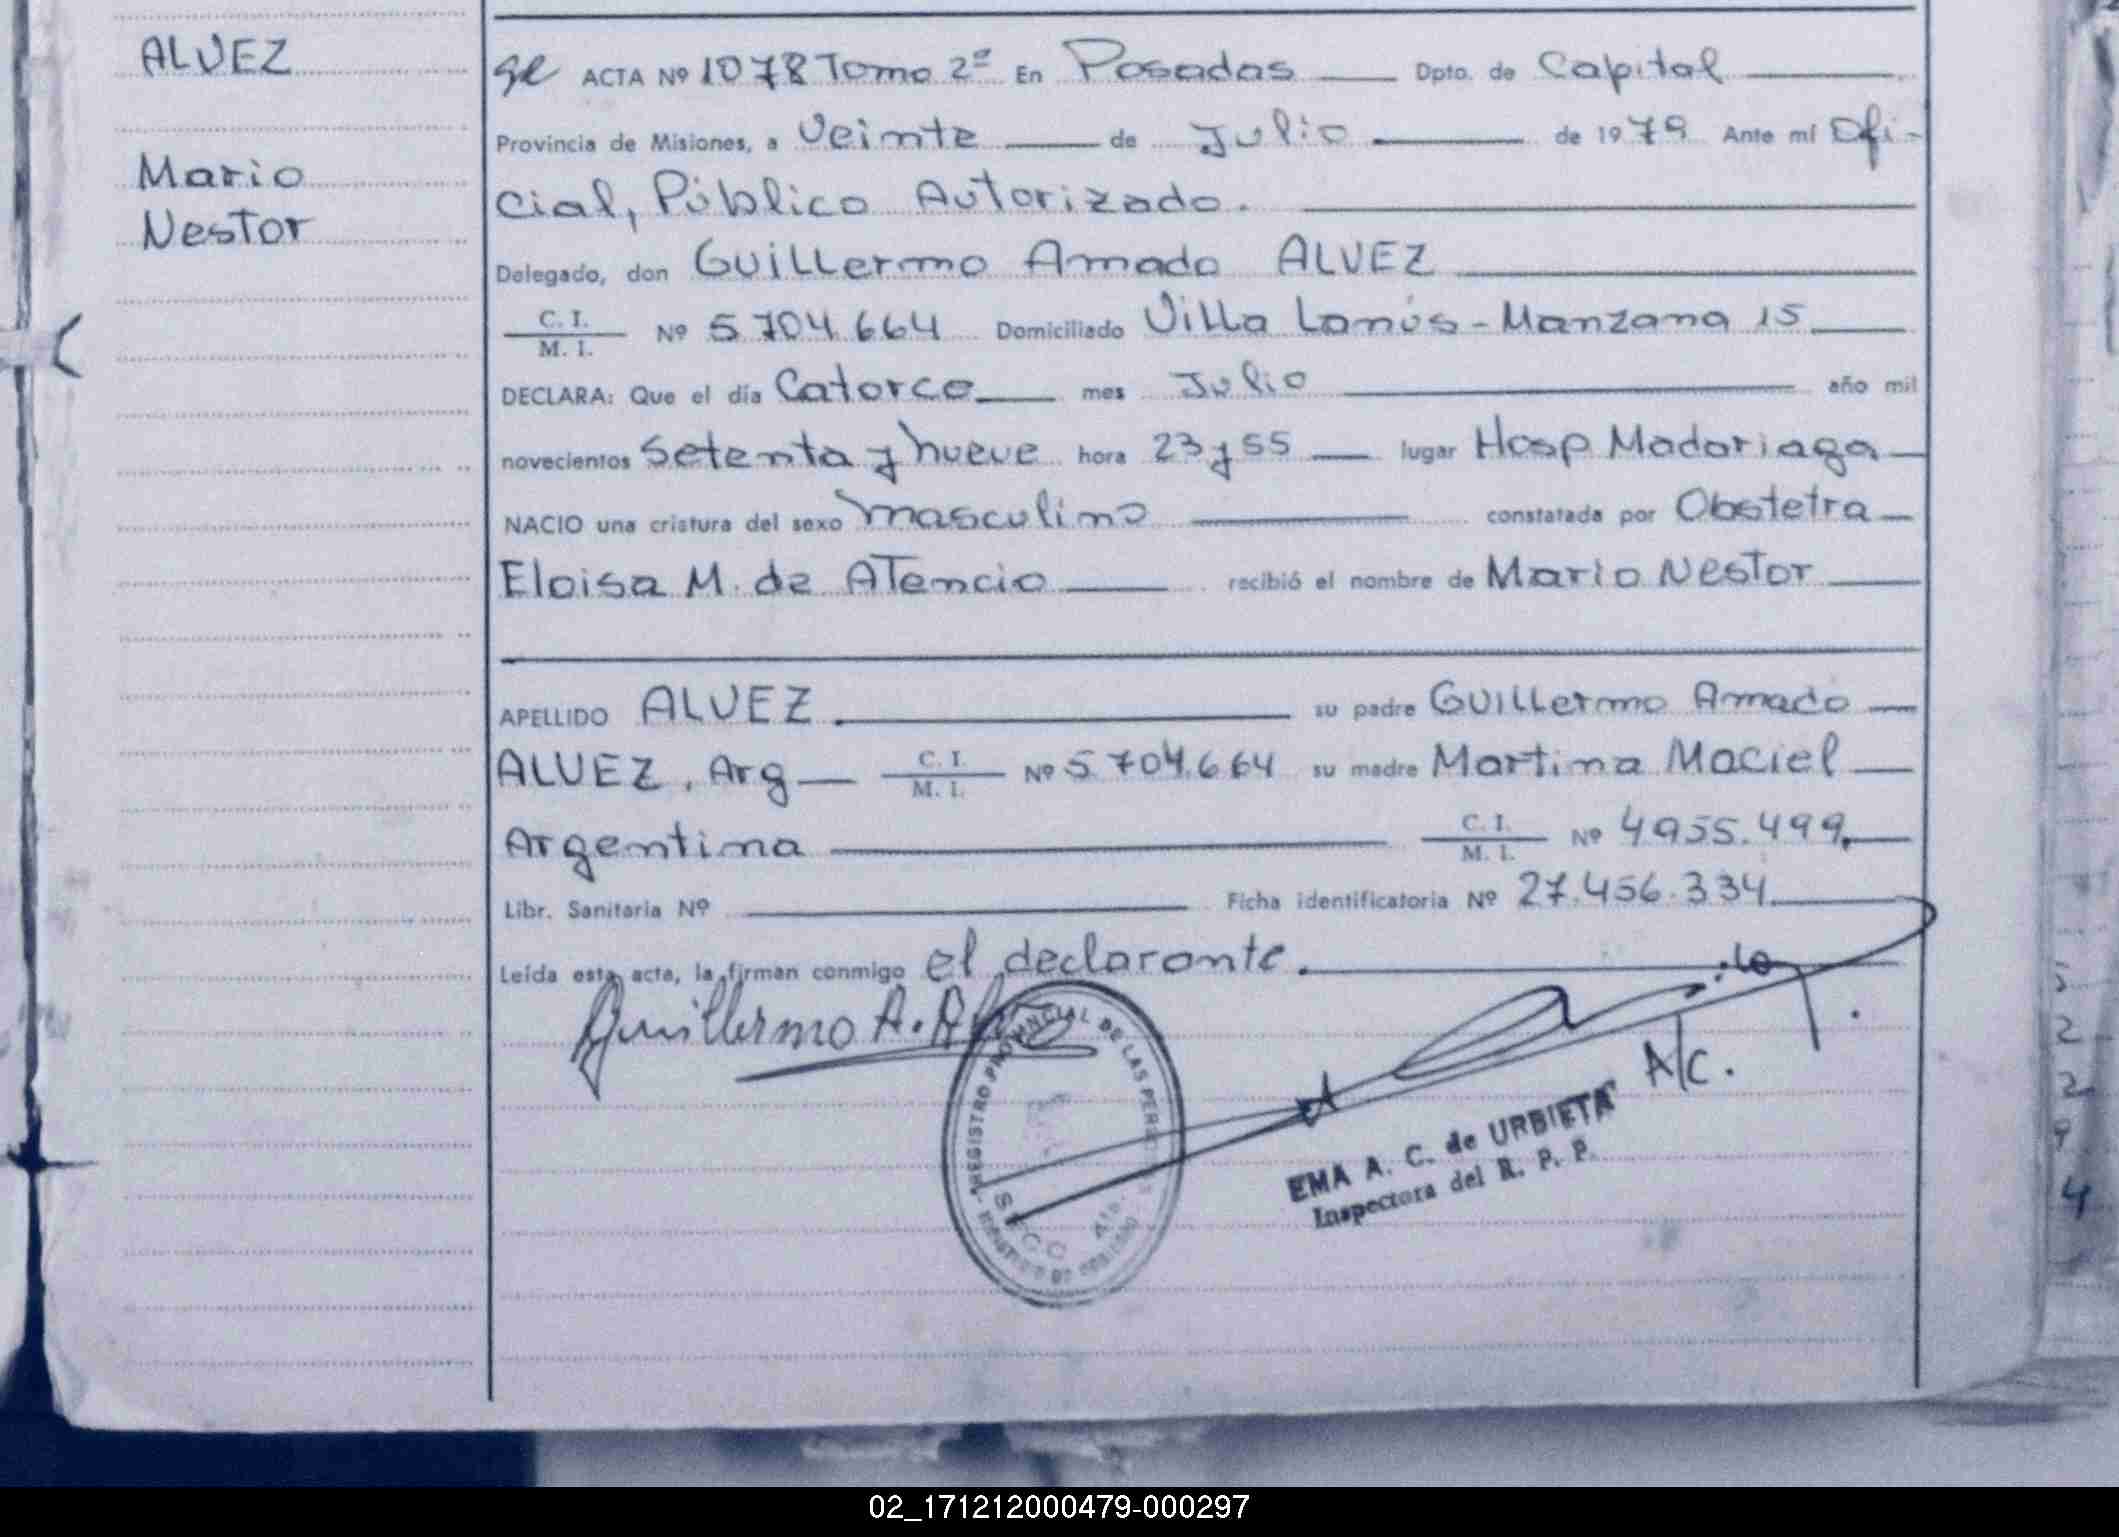 ALVEZ
Mario
Nestor
ACTA Nº 1078 Tomo 2º En Posadas Dpto. de Capital
Provincia de Misiones, a Veinte de Julio de 1979 Ante mí Ofi-
cial, Público Autorizado.
Delegado, don Guillermo Amado ALVEZ
C. I.
M. I. Nº 5.704.664 Domiciliado Villa Lanús - Manzana 15
DECLARA: Que el día Catorce mes Julio año mil
novecientos setenta y nueve hora 23 y 55 lugar Hosp Madariaga
NACIO una criatura del sexo masculino constatada por Obstetra
Eloisa M. de Atencio recibió el nombre de Mario Nestor
APELLIDO ALVEZ. su padre Guillermo Amado
ALVEZ, Arg C. I. M. I. Nº 5.704.664 su madre Martina Maciel
Argentina C. I. M. I. Nº 4955.499.
Libr. Sanitaria Nº Ficha identificatoria Nº 27.456.334
Leída esta acta, la firman conmigo el declarante.
Guillermo A.
A/C.
REGISTRO PROVINCIAL DE LAS
EMA A. C. de URBIETA
Inspectora del R. P. P.
5
2
2
9
4
02_171212000479-000297